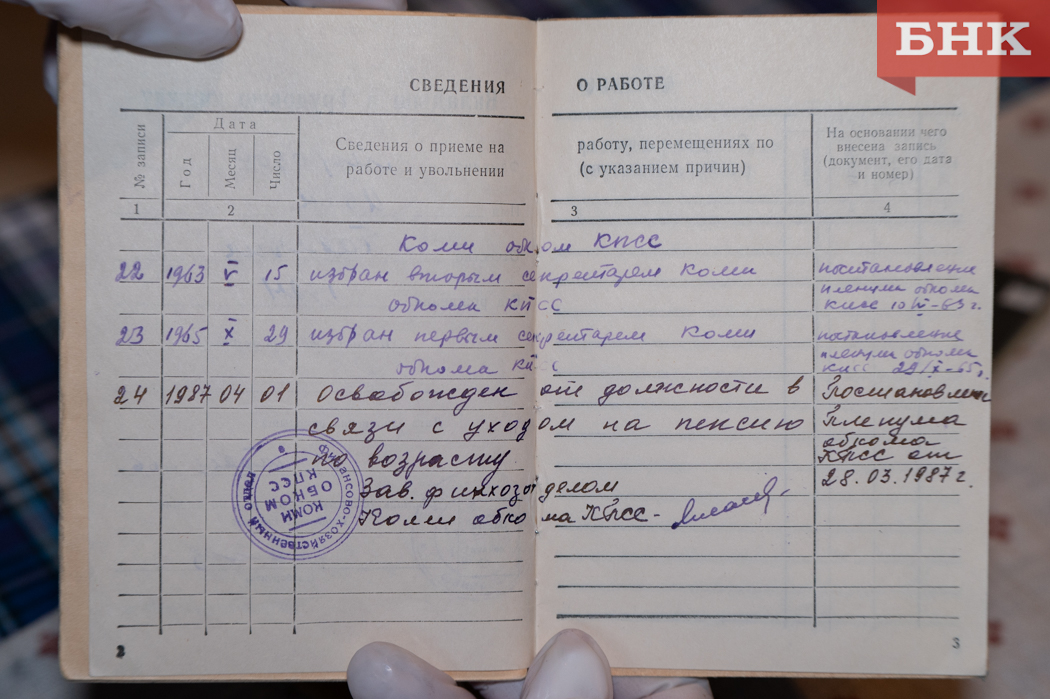 БНК
СВЕДЕНИЯ О РАБОТЕ
№ записи
Дата
Год
Месяц
Число
Сведения о приеме на работу, перемещениях по
работе и увольнении (с указанием причин)
На основании чего
внесена запись
(документ, его дата
и номер)
1 2 3 4
Коми обком КПСС
22 1963 V 15 избран вторым секретарем Коми постановление
обкома КПСС пленума обкома
КПСС
23 1965 X 29 избран первым секретарем Коми постановление
обкома КПСС пленума обкома
КПСС 29/X-65г.
24 1987 04 01 Освобожден от должности в Постановление
связи с уходом на пенсию Пленума
по возрасту обкома
КПСС от
Зав. финхозотделом 28.03.1987г.
Коми обкома КПСС-
Финансово-хозяйственный отдел
КОМИ
ОБКОМ
КПСС
2 3